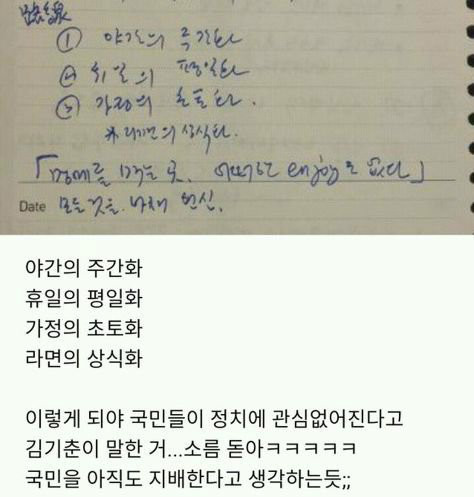 路線
① 야간의 주간화
② 휴일의 평일화
③ 가정의 초토화.
※ 라면의 상식화.
「명예를 먹는 곳. 어떠한 enjoy도 없다」
Date 모든 것을 바쳐 헌신.
야간의 주간화
휴일의 평일화
가정의 초토화
라면의 상식화
이렇게 되야 국민들이 정치에 관심없어진다고
김기춘이 말한 거...소름 돋아ㅋㅋㅋㅋㅋ
국민을 아직도 지배한다고 생각하는듯;;